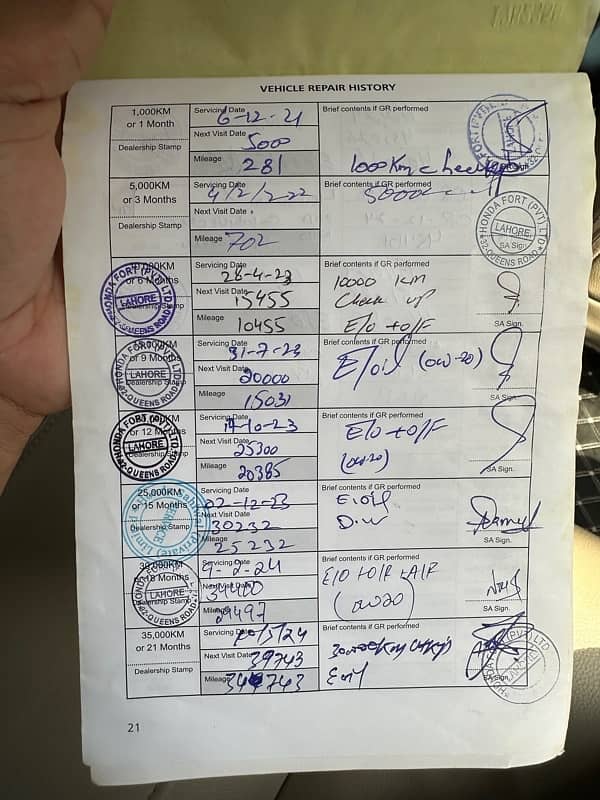 VEHICLE REPAIR HISTORY
1,000KM
or 1 Month
Dealership Stamp
Servicing Date 6-12-21
Next Visit Date 5000
Mileage 281
Brief contents if GR performed
1000 Km check
5,000KM
or 3 Months
Dealership Stamp
Servicing Date 4/2/2022
Next Visit Date
Mileage 702
Brief contents if GR performed
HONDA FORT (PVT) LTD
LAHORE
32-QUEENS ROAD
SA Sign.
HONDA FORT (PVT) LTD
LAHORE
32-QUEENS ROAD
or 6 Months
Servicing Date 26-4-23
Next Visit Date 15455
Mileage 10455
Brief contents if GR performed
10000 KM
Check up
E/o + o/F
SA Sign.
HONDA FORT
LAHORE
32-QUEENS ROAD
or 9 Months
Dealership Stamp
Servicing Date 31-7-23
Next Visit Date 20000
Mileage 15031
Brief contents if GR performed
E/oil (0w-20)
SA Sign.
HONDA FORT (PVT) LTD
LAHORE
32-QUEENS ROAD
or 12 Months
Dealership Stamp
Servicing Date 17-10-23
Next Visit Date 25300
Mileage 20385
Brief contents if GR performed
E/o + o/F
(0w20)
SA Sign.
25,000KM
or 15 Months
Dealership Stamp
SERVICE
(Private) Limited
Servicing Date 02-12-23
Next Visit Date 30232
Mileage 25232
Brief contents if GR performed
E.oil
D.w
SA Sign.
30,000KM
or 18 Months
Dealership Stamp
HONDA
LAHORE
32-QUEENS ROAD
Servicing Date 9-2-24
Next Visit Date 34400
Mileage 29497
Brief contents if GR performed
E/O + O/F + A/F
(0w20)
SA Sign.
35,000KM
or 21 Months
Dealership Stamp
Servicing Date
Next Visit Date 39743
Mileage 34743
Brief contents if GR performed
E oil
SA Sign.
LAHORE
21